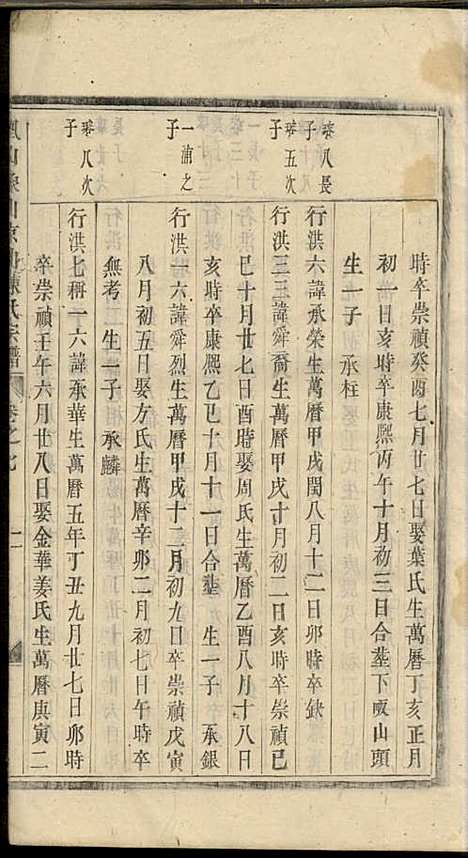 時卒崇禎癸酉七月廿七日娶葉氏生萬曆丁亥正月
初一日亥時卒康熙丙午十月初三日合塟下畈山頭
生一子 承柱
琴八長子
行洪六諱承榮生萬曆甲戌閏八月十二日卯時卒缺
琴五次子
行洪三三諱舜裔生萬曆甲戌十月初二日亥時卒崇禎己
巳十月廿七日酉時娶周氏生萬曆乙酉八月十八日
亥時卒康熙乙巳十月十一日合塟 生一子 承銀
一浦之子
行洪十六諱舜烈生萬曆甲戌十二月初九日卒崇禎戊寅
八月初五日娶方氏生萬曆辛卯二月初七日午時卒
無考 生一子 承麟
琴八次子
行洪七稱一六諱承華生萬曆五年丁丑九月廿七日卯時
卒崇禎壬午六月廿八日娶金華姜氏生萬曆庚寅二
陳氏宗譜
卷之七